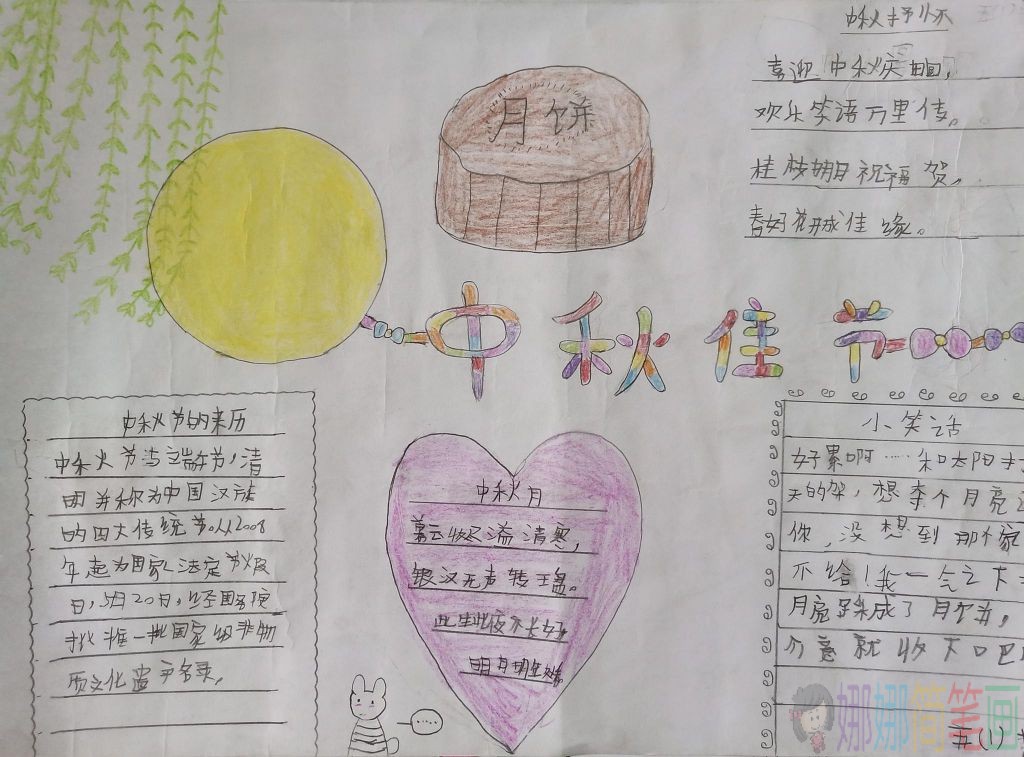 中秋抒怀
喜迎中秋庆团圆,
欢乐笑语万里传。
桂枝明月祝福贺,
春好花城佳缘。
月饼
中秋佳节
中秋节的来历
中秋节与端午节,清
明并称为中国汉族
的四大传统节。从2008
年起为国家法定节假
日,5月20日,经国务院
批准一批国家级非物
质文化遗产名录,
中秋月
暮云收尽溢清寒,
银汉无声转玉盘。
此生此夜不长好,
明月明年
....
小笑话
好累啊……和太阳打
天的架,想夺个月亮
你,没想到那个家
不给!我一气之下
月亮踩成了月饼,
介意就收下口巴
五(1)
娜娜简笔画